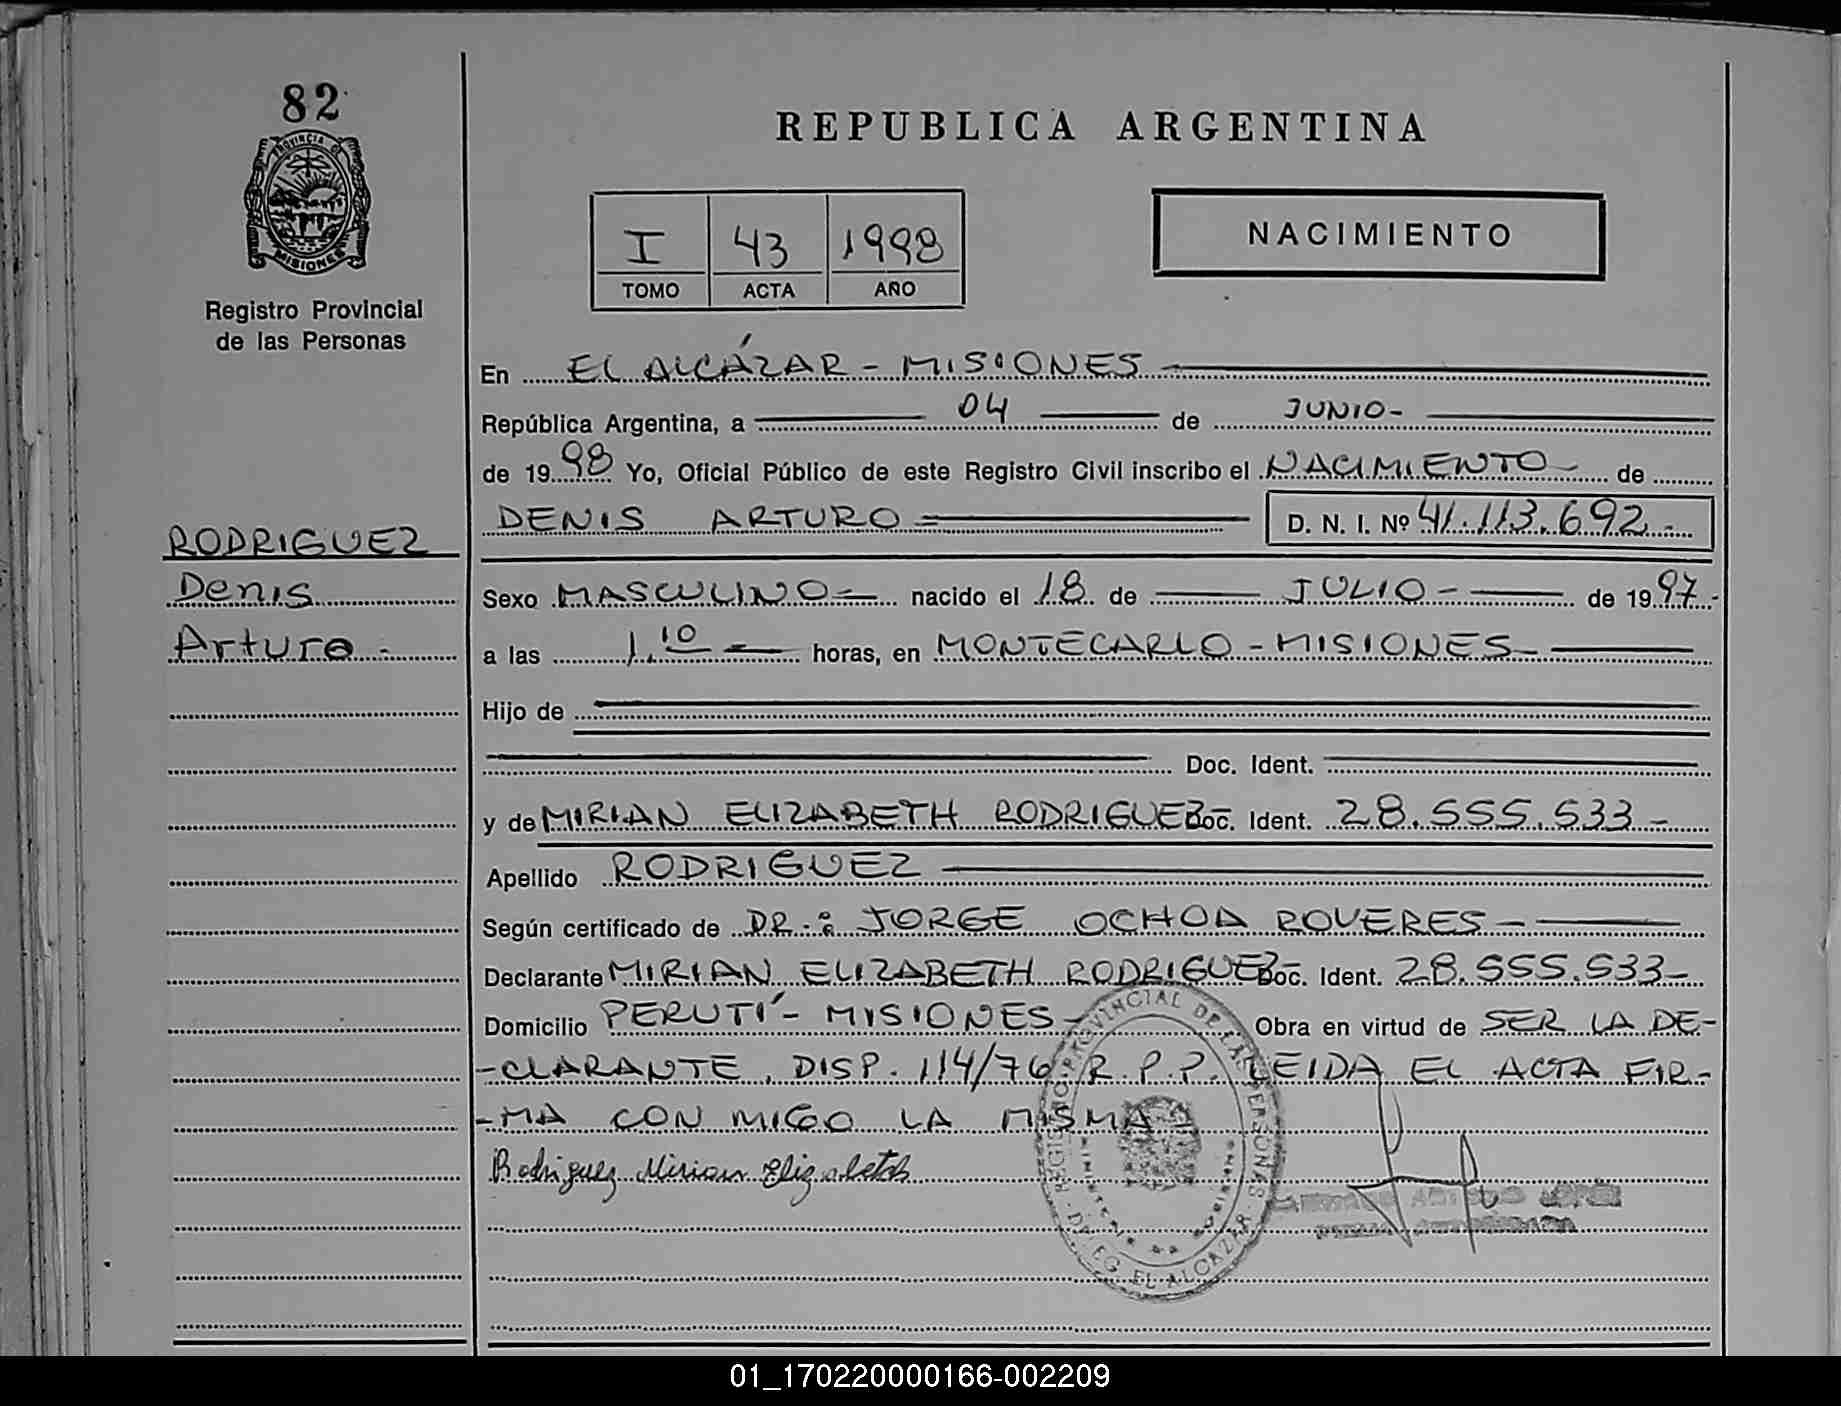 82
PROVINCIA DE
MISIONES
Registro Provincial
de las Personas
RODRIGUEZ
Denis
Arturo -
REPUBLICA ARGENTINA
I 43 1998
TOMO ACTA AÑO
NACIMIENTO
En EL ALCÁZAR - MISIONES
República Argentina, a 04 de JUNIO-
de 1998 Yo, Oficial Público de este Registro Civil inscribo el NACIMIENTO de
DENIS ARTURO = D. N. I. Nº 41.113.692.-
Sexo MASCULINO= nacido el 18 de JULIO - de 1997.-
a las 1.10 = horas, en MONTECARLO - MISIONES -
Hijo de
Doc. Ident.
y de MIRIAN ELIZABETH RODRIGUEZ Doc. Ident. 28.555.533 -
Apellido RODRIGUEZ
Según certificado de DR.: JORGE OCHOA ROVERES -
Declarante MIRIAN ELIZABETH RODRIGUEZ Doc. Ident. 28.555.533-
Domicilio PERUTÍ - MISIONES - Obra en virtud de SER LA DE-
-CLARANTE. DISP. 114/76 R.P.P. LEIDA EL ACTA FIR-
-MA CON MIGO LA MISMA
Rodriguez Mirian Elizabeth
REGISTRO PROVINCIAL DE LAS PERSONAS
EL ALCAZAR
01_170220000166-002209